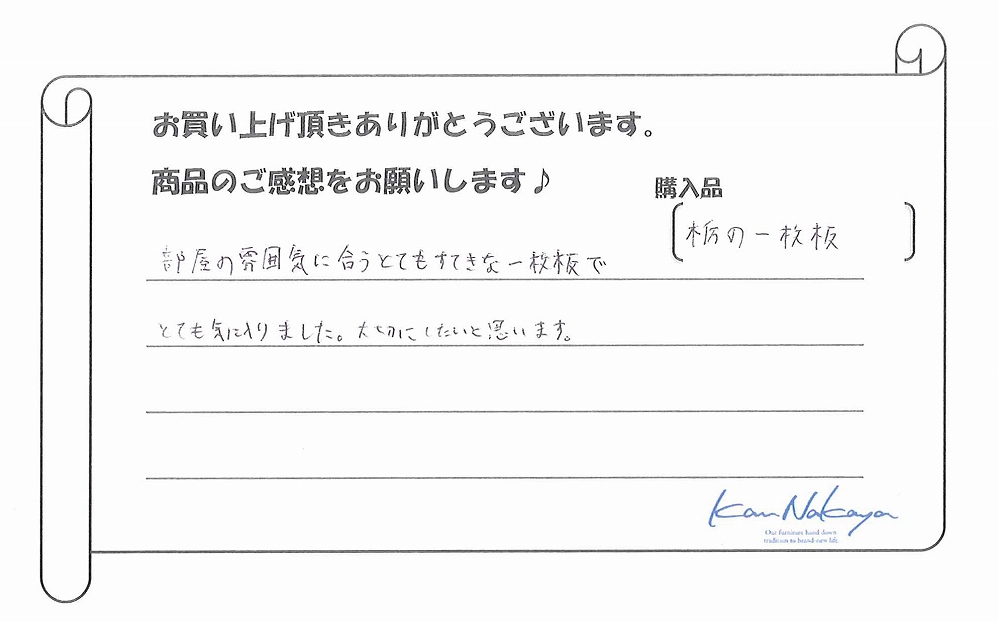 お買い上げ頂きありがとうございます。
商品のご感想をお願いします♪
購入品
栃の一枚板
部屋の雰囲気に合うとてもすてきな一枚板で
とても気に入りました。大切にしたいと思います。
Kan Nakaya
Our furniture hand down
tradition to brand-new life.